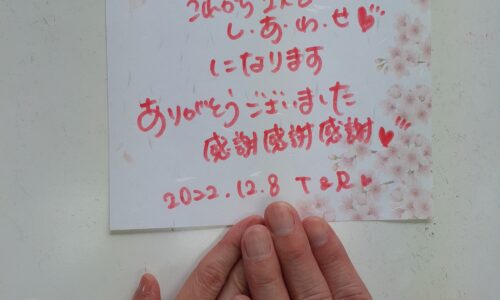 これから 2人で
し・あ・わ・せ♥
になります
ありがとうございました
感謝感謝感謝♥
2022.12.8 T&R♥